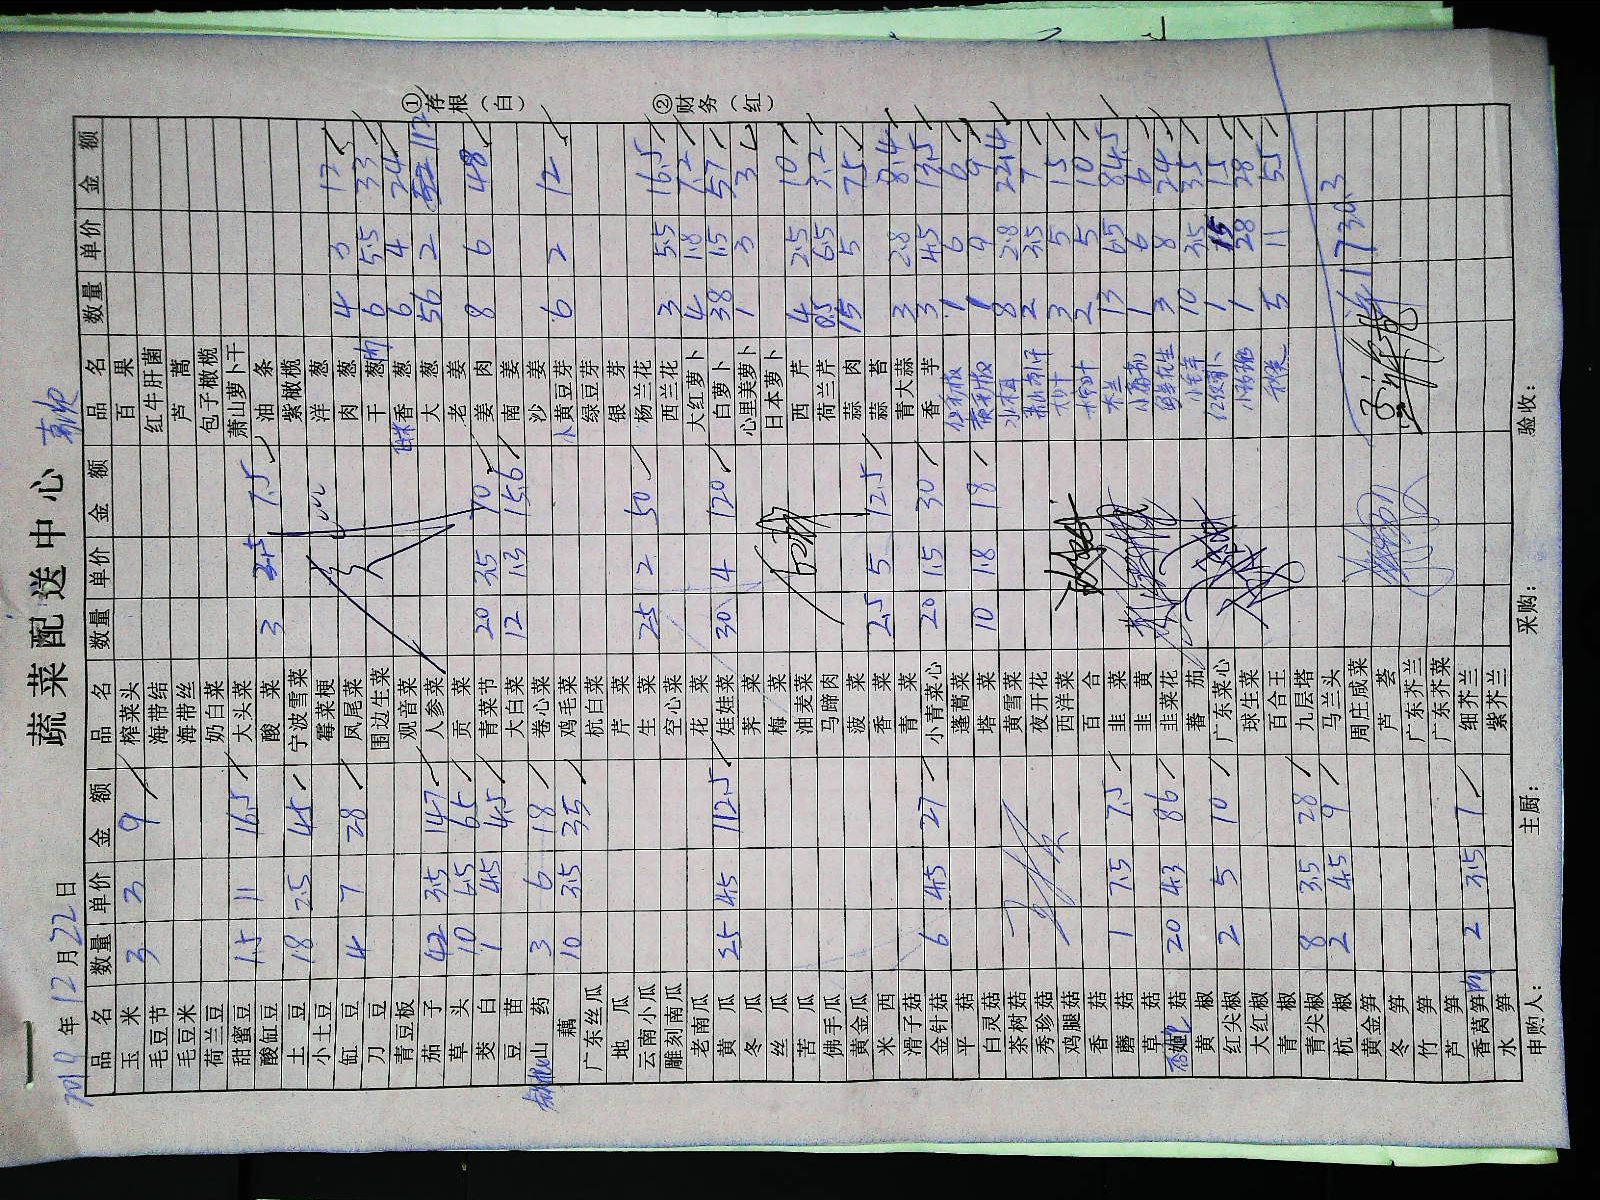 蔬菜配送中心
2019年12月22日
品名 数量 单价 金额 品名 数量 单价 金额 品名 数量 单价 金额
玉米 3 3 9 榨菜头 百果
毛豆节 海带结 红牛肝菌
毛豆米 海带丝 芦蒿
荷兰豆 奶白菜 包子橄榄
甜蜜豆 1.5 11 16.5 大头菜 萧山萝卜干
酸缸豆 酸菜 3 2.5 7.5 油条
土豆 18 2.5 45 宁波雪菜 紫橄榄
小土豆 霉菜梗 洋葱 4 3 12
缸豆 4 7 28 凤尾菜 肉葱 6 5.5 33
刀豆 围边生菜 干葱 6 4 24
青豆板 观音菜 香葱 56 2 112
茄子 42 3.5 147 人参菜 大葱
草头 10 6.5 65 贡菜 老姜 8 6 48
茭白 1 4.5 4.5 青菜节 20 3.5 70 姜肉
豆苗 大白菜 12 1.3 15.6 南姜
山药 3 6 18 卷心菜 沙姜
藕 10 3.5 35 鸡毛菜 黄豆芽 6 2 12
广东丝瓜 杭白菜 绿豆芽
地瓜 芹菜 银芽
云南小瓜 生菜 25 2 50 杨兰花
雕刻南瓜 空心菜 西兰花 3 5.5 16.5
老南瓜 花菜 大红萝卜 4 1.8 7.2
黄瓜 25 4.5 112.5 娃娃菜 30 4 120 白萝卜 38 1.5 57
冬瓜 荠菜 心里美萝卜 1 3 3
丝瓜 梅菜 日本萝卜
苦瓜 油麦菜 西芹 4 2.5 10
佛手瓜 马蹄肉 荷兰芹 0.5 6.5 3.2
黄金瓜 菠菜 蒜肉 15 5 75
米西 香菜 2.5 5 12.5 蒜苔
滑子菇 青菜 青大蒜 3 2.8 8.4
金针菇 6 4.5 27 小青菜心 20 1.5 30 香芋 3 4.5 13.5
平菇 蓬蒿菜 1 6 6
白灵菇 塔菜 10 1.8 18 1 9 9
茶树菇 黄雪菜 8 2.8 22.4
秀珍菇 夜开花 2 3.5 7
鸡腿菇 西洋菜 3 5 15
香菇 百合 2 5 10
蘑菇 1 7.5 7.5 韭菜 13 6.5 84.5
草菇 韭黄 1 6 6
菇 20 4.3 86 韭菜花 3 8 24
黄椒 蕃茄 10 3.5 35
红尖椒 2 5 10 广东菜心 1 15 15
大红椒 球生菜 1 28 28
青椒 百合王 5 11 55
青尖椒 8 3.5 28 九层塔
杭椒 2 4.5 9 马兰头 1730.3
黄金笋 周庄咸菜
冬笋 芦荟
竹笋 广东芥兰
芦笋 广东芥菜
香莴笋 2 3.5 7 细芥兰
水笋 紫芥兰
申购人： 主厨： 采购： 验收：
①存根（白）
②财务（红）